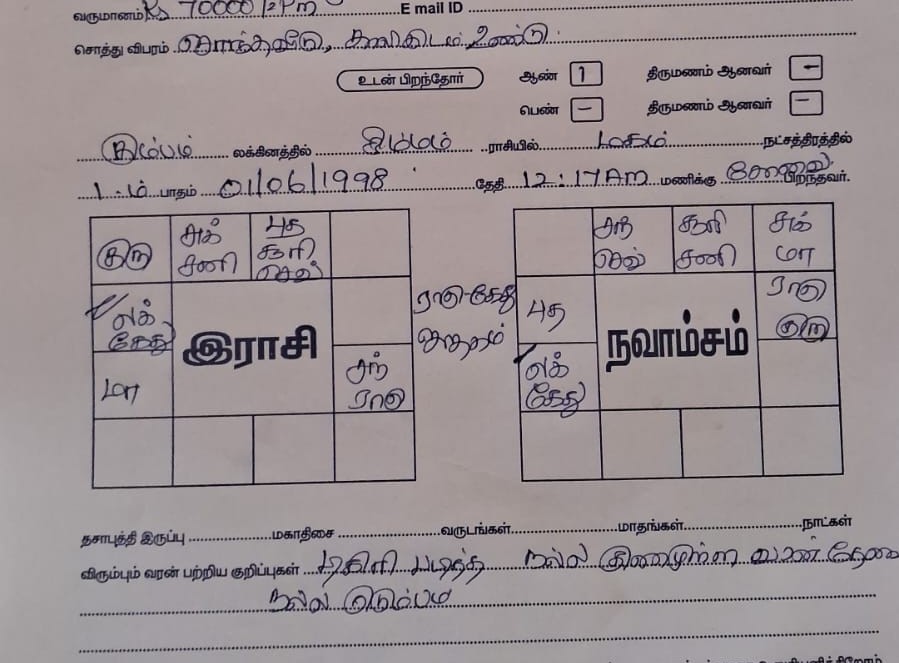 வருமானம் Rs 70000/PM E mail ID
சொத்து விபரம் சொந்தவீடு, காலிஇடம் உண்டு
உடன் பிறந்தோர் ஆண் 1 திருமணம் ஆனவர் -
பெண் - திருமணம் ஆனவர் -
கும்பம் லக்கினத்தில் சிம்மம் ராசியில் மகம் நட்சத்திரத்தில்
1-ம் பாதம் 01/06/1998 தேதி 12:17AM மணிக்கு பிறந்தவர்.
குரு சுக் சனி புத சூரி செவ்
சந் செவ் சூரி சனி சுக் மா
லக் கேது
ராகு-கேது
புத ராகு குரு
இராசி நவாம்சம்
மா சந் ராகு
லக் கேது
தசாபுத்தி இருப்பு மகாதிசை வருடங்கள் மாதங்கள் நாட்கள்
விரும்பும் வரன் பற்றிய குறிப்புகள் டிகிரி படித்த நல்ல குணமுள்ள மணமகன் தேவை
நல்ல குடும்பம்